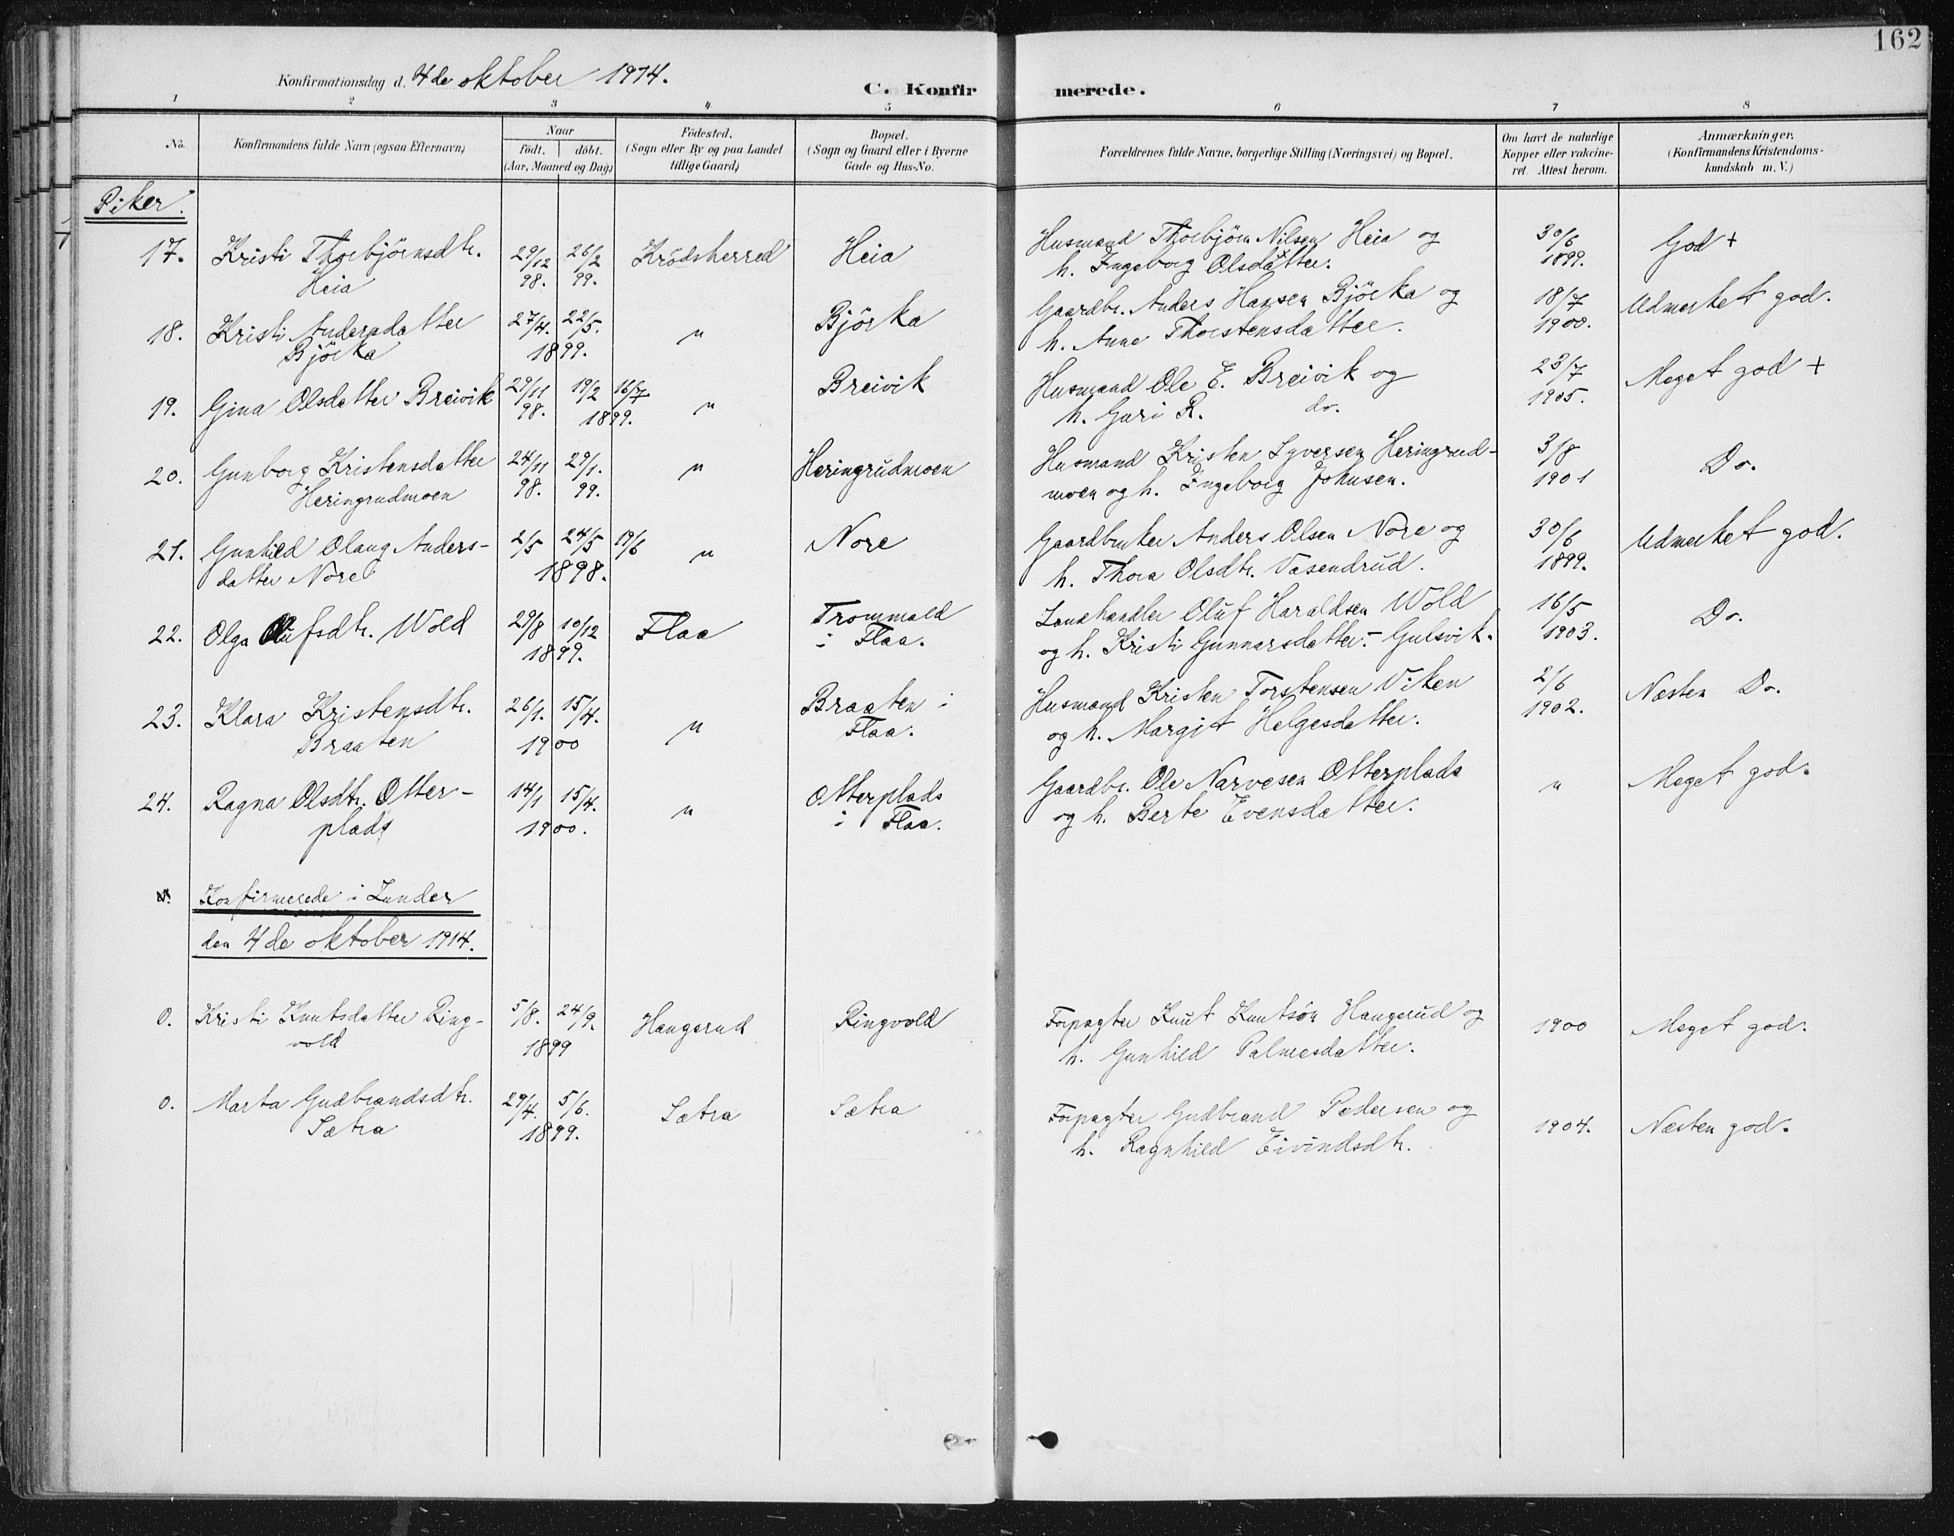 162
Konfirmationsdag d. 4de oktober 1914.
C. Konfirmerede.
1 2 3 4 5 6 7 8
No.
Konfirmandens fulde Navn (ogsaa Efternavn)
Naar
födt. döbt.
(Aar, Maaned og Dag)
Födested.
(Sogn eller By og paa Landet
tillige Gaard)
Bopæl.
(Sogn og Gaard eller i Byerne
Gade og Hus-No.
Forældrenes fulde Navne, borgerlige Stilling (Næringsvei) og Bopæl.
Om havt de naturlige
Kopper eller vakcine-
ret. Attest herom.
Anmærkninger.
(Konfirmandens Kristendoms-
kundskab m. V.)
Piker.
17. Kristi Thorbjörnsdtr. 29/12 26/2 Krödsherred Heia Husmand Thorbjörn Nilsen Heia og 30/6 God +
Heia 98. 99. h. Ingeborg Olsdatter. 1899.
18. Kristi Andersdatter 27/4. 22/5. " Björka Gaardbr. Anders Hansen Björka og 18/7 Udmerket god.
Björka 1899. h. Anne Thorstensdatter. 1900.
19. Gina Olsdatter Breivik 29/11 19/2 16/7 " Breivik Husmand Ole E. Breivik og 23/7 Meget god +
98. 1899. h. Guri R. do. 1905.
20. Gunborg Kristensdatter 24/11 29/1. " Heringrudmoen Husmand Kristen Syversen Heringrud- 3/8 Do.
Heringrudmoen 98. 99. moen og h. Ingeborg Johnsen. 1901
21. Gunhild Olaug Anders- 2/5 24/5 19/6 " Nore Gaardbruker Anders Olsen Nore og 30/6 Udmerket god.
datter Nore 1898. h. Thora Olsdtr. Tasendrud. 1899.
22. Olga Olufsdtr. Wold 29/8 10/12 Flaa Trommald Landhandler Oluf Haraldsen Wold 16/5 Do.
1899. i Flaa. og h. Kristi Gunnarsdatter. - Gulsvik. 1903.
23. Klara Kristensdtr. 26/1. 15/4. " Braaten i Husmand Kristen Torstensen Viken 2/6 Næsten Do.
Braaten 1900 Flaa. og h. Margit Helgesdatter. 1902.
24. Ragna Olsdtr. Otter- 14/1 15/4. " Otterplads Gaardbr. Ole Narvesen Otterplads " Meget god.
plads 1900. i Flaa. og h. Berte Evensdatter.
Konfirmerede i Lunder
den 4de oktober 1914.
0. Kristi Knutsdatter Ring- 5/8. 24/9. Haugerud Ringvold Forpagter Knut Knutsön Haugerud og 1900 Meget god.
vold 1899 h. Gunhild Palmesdatter.
0. Marta Gudbrandsdtr. 29/4. 5/6. Sætra Sætra Forpagter Gudbrand Pedersen og 1904. Næsten god.
Sætra 1899. h. Ragnhild Eivindsdtr.